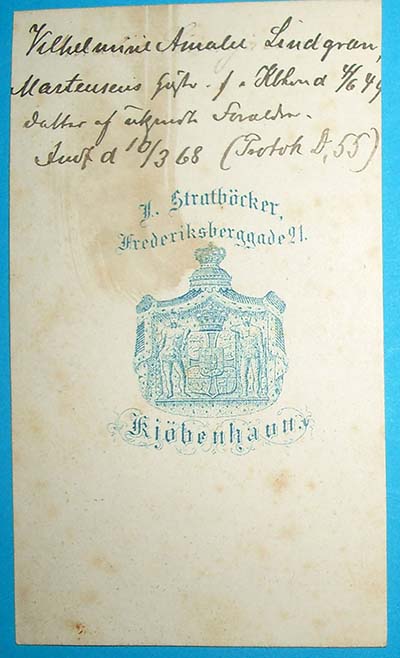 Vilhelmine Amalie Lindgran,
Martensens f. i Kbhvn d 4/6 49
datter af ukjendte Foraldre.
Indf d 10/3 68 (Protok D, 55)
F. Stratböcker,
Frederiksberggade 21.
Kjöbenhavn.